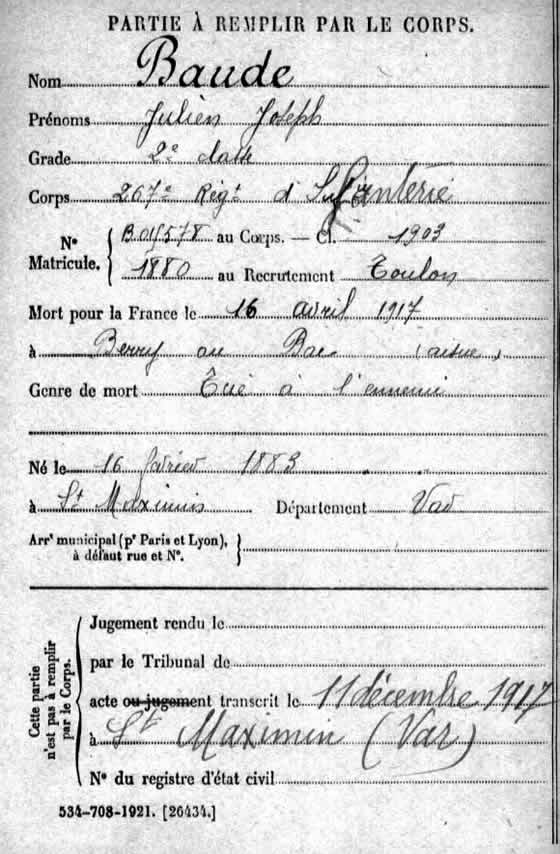 PARTIE À REMPLIR PAR LE CORPS.
Nom Baude
Prénoms Julien Joseph
Grade 2e classe
Corps 267e Régt d'Infanterie
N° Matricule. { B.015578 au Corps. — Cl. 1903
1880 au Recrutement Toulon
Mort pour la France le 16 avril 1917
à Berry au Bac (aisne)
Genre de mort Tué à l'ennemi
Né le 16 février 1883
à St Maximin Département Var
Arrt municipal (pr Paris et Lyon), à défaut rue et N°. }
Cette partie n'est pas à remplir par le Corps.
Jugement rendu le
par le Tribunal de
acte ou jugement transcrit le 11 décembre 1917
à St Maximin (Var)
N° du registre d'état civil
534-708-1921. [26434.]